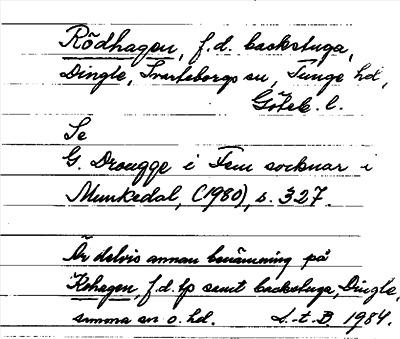 Rödhagen, f.d. backstuga,
Dingle, Svarteborgs sn, Tunge hd,
Göteb. l.
Se
G. Drougge i Fem socknar i
Munkedal, (1980), s. 327.
Är delvis annan benämning på
Kohagen, f.d. lp samt backstuga, Dingle,
samma sn o. hd. L.-t. B. 1984.